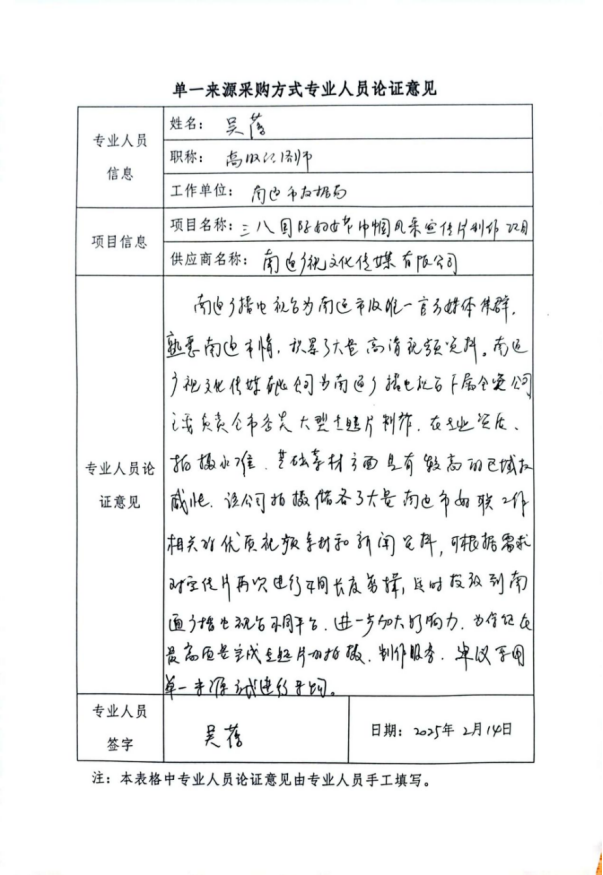 单一来源采购方式专业人员论证意见
专业人员
信息
姓名：吴蓓
职称：高级
工作单位：南通市
项目信息
项目名称：三八国际妇女节巾帼风采宣传片制作项目
供应商名称：南通广视文化传媒有限公司
专业人员论
证意见
南通广播电视台为南通市级唯一官方媒体集群，
熟悉南通市情，积累了大量高清视频资料。南通
广视文化传媒有限公司为南通广播电视台下属全资公司
主要负责全市各类大型专题片制作，在专业资质、
拍摄水准、基础素材方面具有较高的区域权
威性。该公司拍摄储备了大量南通市妇联工作
相关的优质视频素材和新闻资料，可根据需求
对宣传片再次进行不同长度剪辑，同时投放到南
通广播电视台不同平台，进一步加大影响力，为保证在
最高质量完成专题片的拍摄、制作服务，建议采用
单一来源方式进行采购。
专业人员
签字
吴蓓
日期：2025年2月14日
注：本表格中专业人员论证意见由专业人员手工填写。